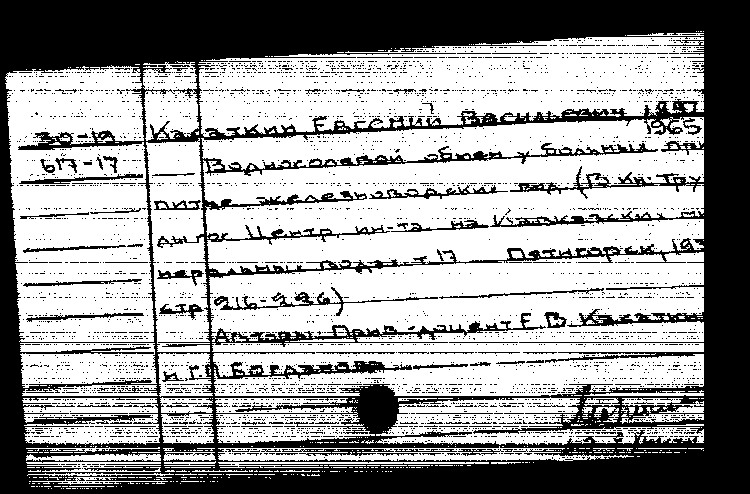 30-19 Касаткин, Евгений Васильевич, 1897
1965
617-17 Водносолевой обмен у больных при
питье железноводских вод. (В кн: Тру
ды гос. Центр. ин-та на Кавказских ми
неральных водах. т. 17 Пятигорск, 193
стр. 216-226)
Авторы: Прив-доцент Е. В. Касаткин
и Г.П. Богданова